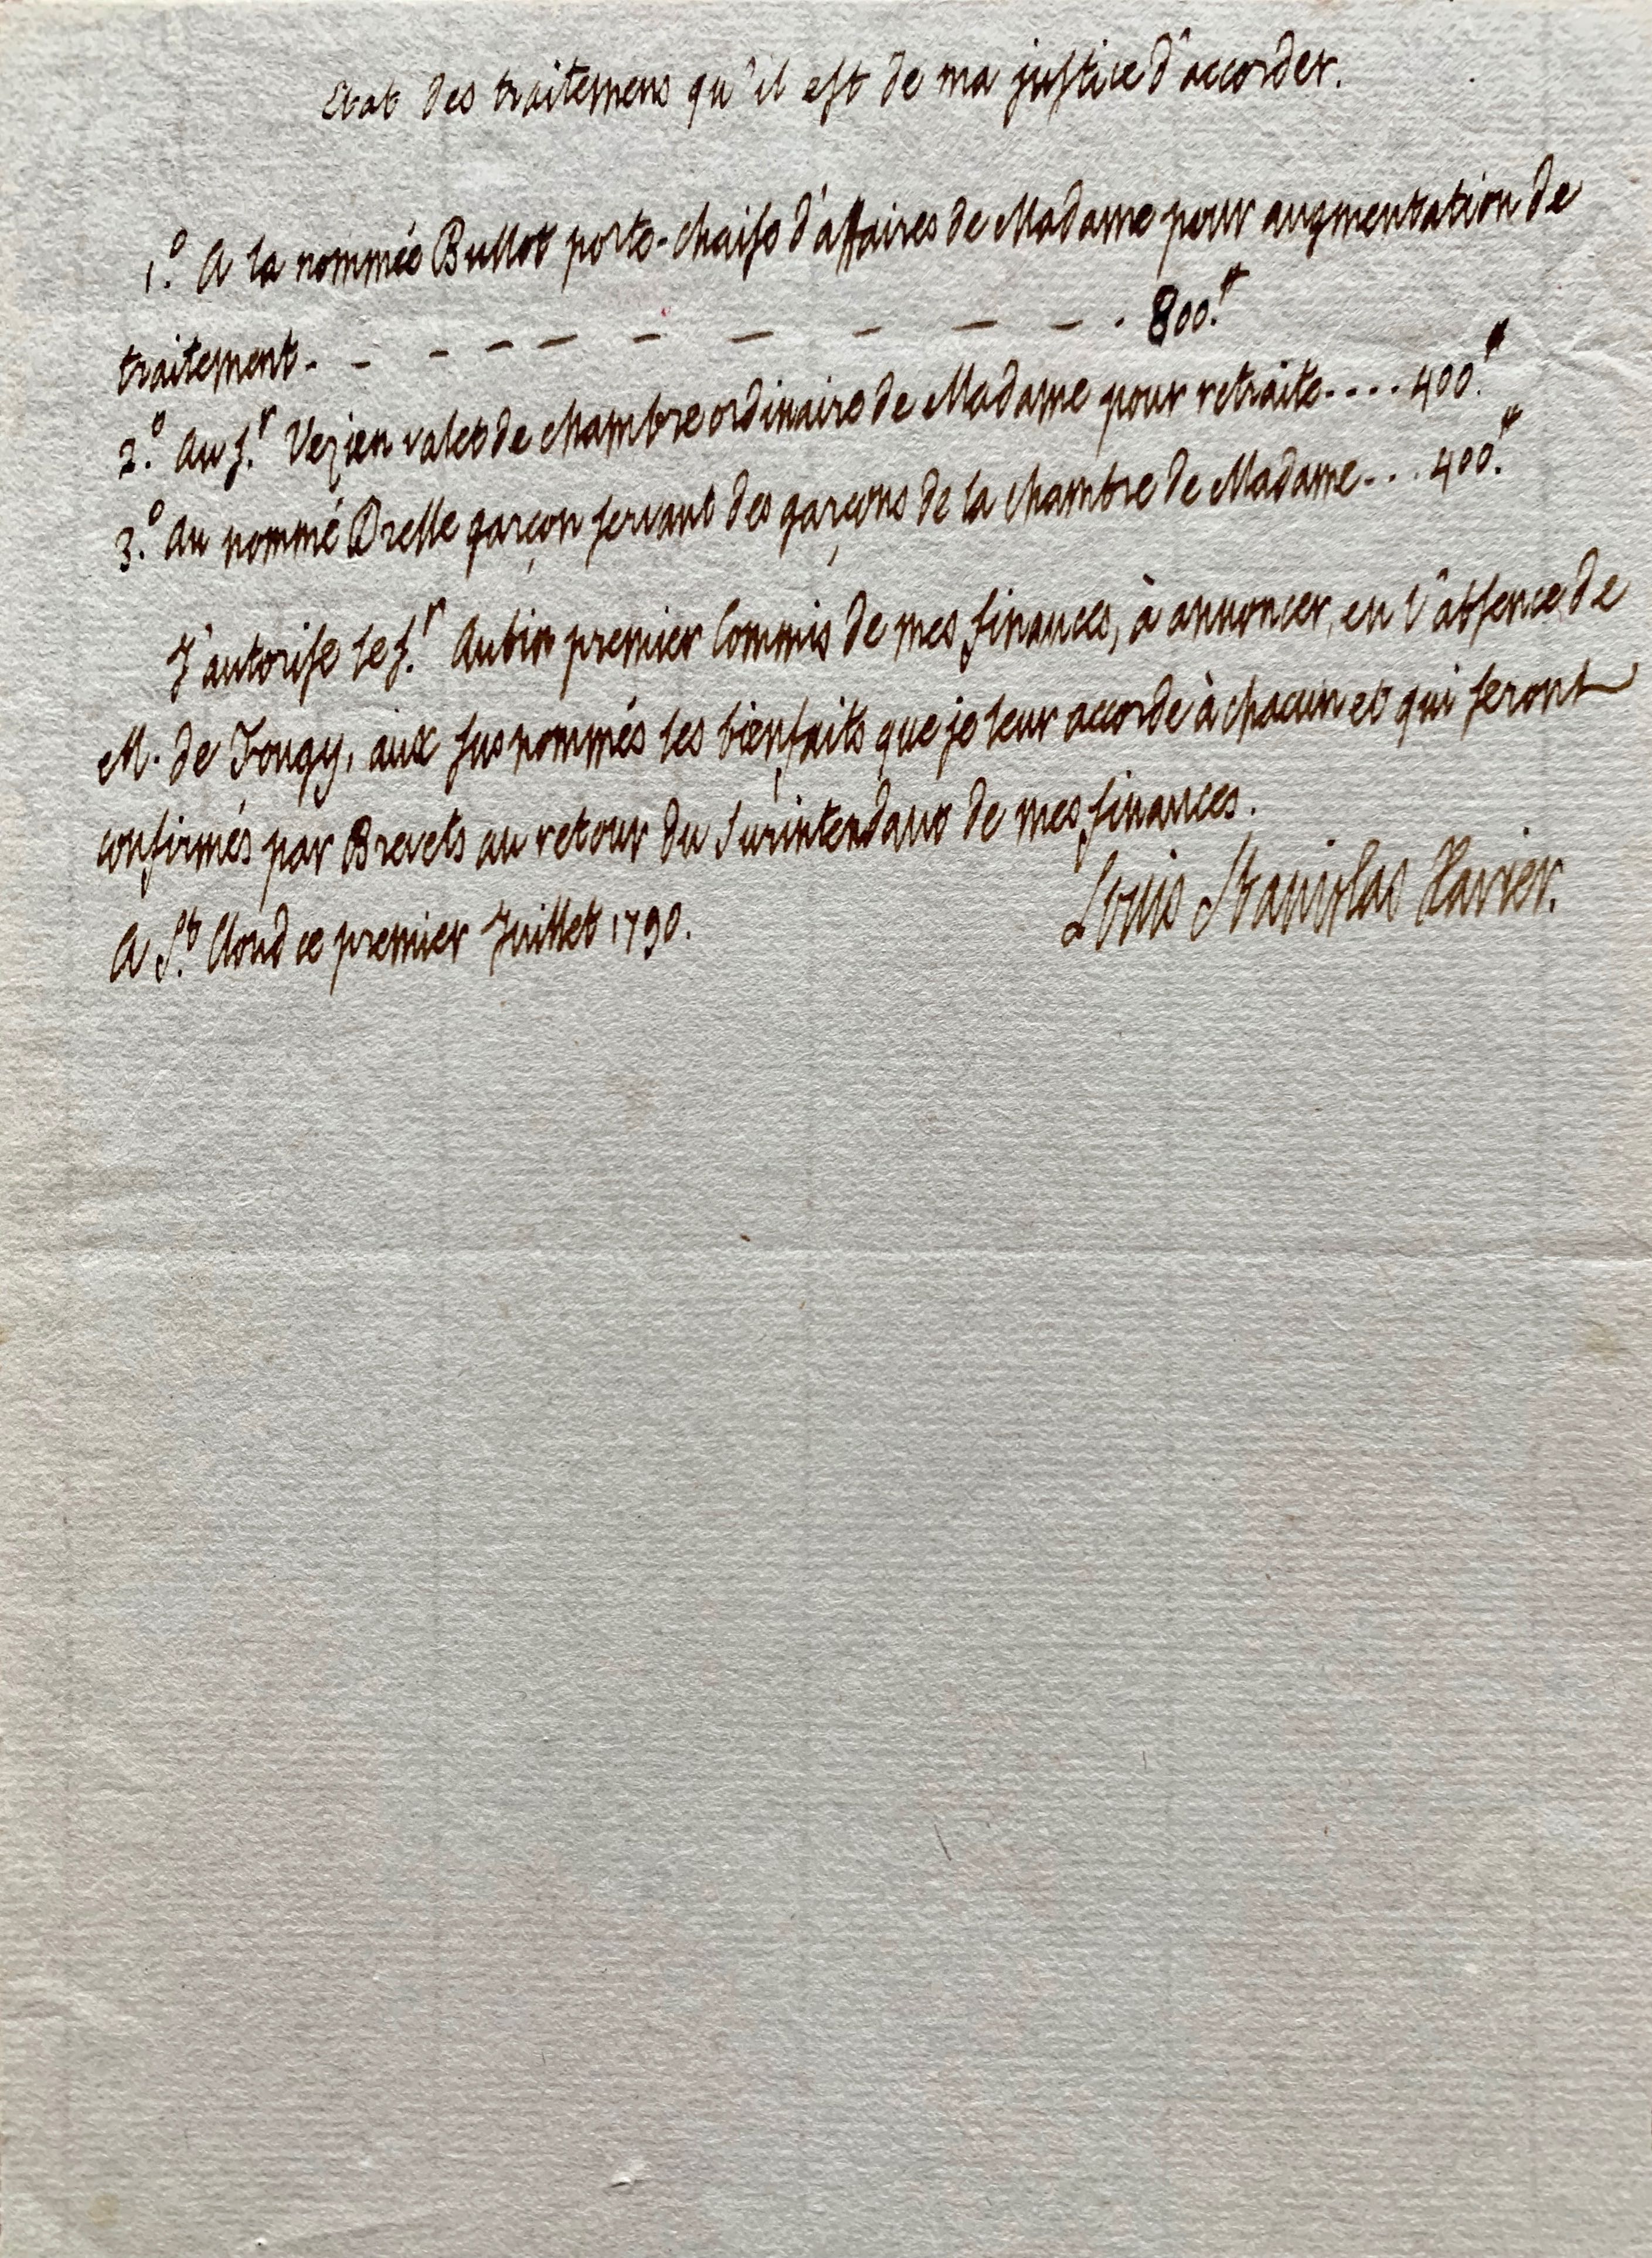 Etat des traitemens qu'il est de ma justice d'accorder.
1.° A la nommée Bullot porte-chaise d'affaires de Madame pour augmentation de
traitement - - - - - - - - - - . 800.#
2.° Au S.r Vezien valet de chambre ordinaire de Madame pour retraite .... 400.#
3.° Au nommé Drelle garçon servant des garçons de la chambre de Madame ... 400.#
J'autorise le S.r Aubin premier Commis de mes finances, à annoncer, en l'absence de
M. de Fougy, aux susnommés les bienfaits que je leur accorde à chacun et qui seront
confirmés par Brevets au retour du Surintendant de mes finances.
A S.t Cloud ce premier Juillet 1790.
Louis Stanislas Xavier.